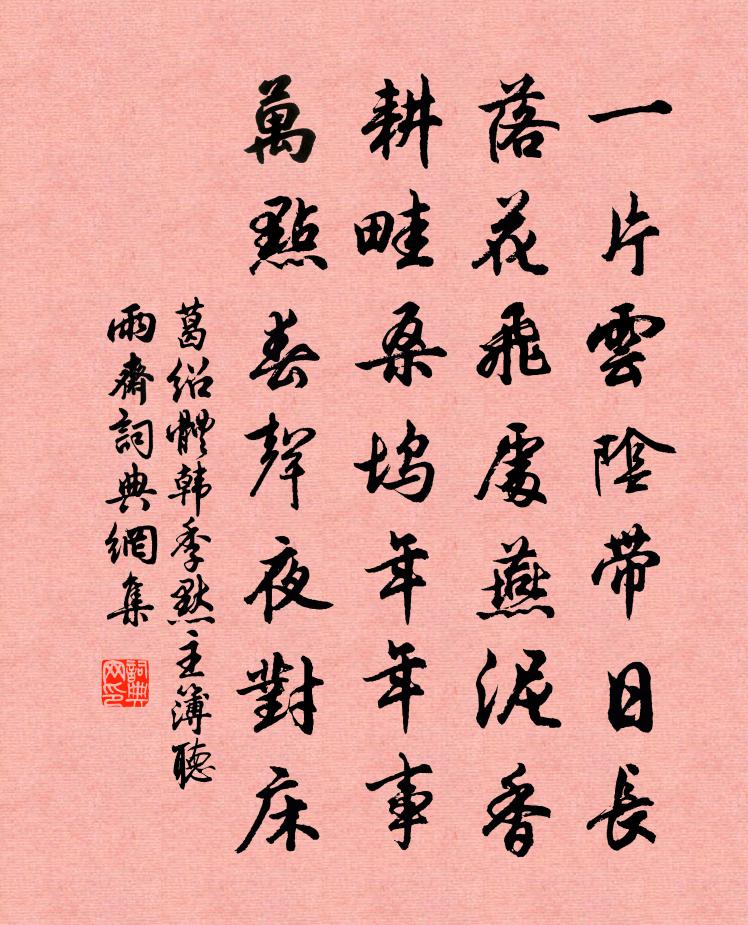 一片雲陰帶日長
落花飛處燕泥香
耕畦桑塢年年事
萬點春聲夜對床
葛紹體韩季默主簿聽
雨齋詞典網集
詞典
网印